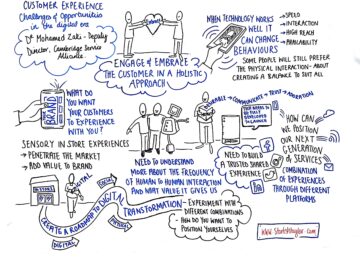 CUSTOMER EXPERIENCE
Challenges & Opportunities
in the digital era
Dr Mohamed Zaki - Deputy
Director, Cambridge Service
Alliance
ENGAGE & EMBRACE
THE CUSTOMER IN A HOLISTIC
APPROACH
WHEN TECHNOLOGY WORKS
WELL IT
CAN CHANGE
BEHAVIOURS
→ SPEED
→ INTERACTION
→ HIGH REACH
→ AVAILABILITY
SOME PEOPLE WILL STILL PREFER
THE PHYSICAL INTERACTION - ABOUT
CREATING A BALANCE TO SUIT ALL
BRAND
WHAT DO
YOU WANT
YOUR CUSTOMERS
TO EXPERIENCE
WITH YOU?
SENSORY IN STORE EXPERIENCES
→ PENETRATE THE MARKET
→ ADD VALUE TO BRAND
NEED TO UNDERSTAND
MORE ABOUT THE FREQUENCY
OF HUMAN TO HUMAN INTERACTION
AND WHAT VALUE IT GIVES US
NEED TO BUILD
A TRUSTED SHARED
EXPERIENCE
HOW CAN
WE POSITION
OUR NEXT
GENERATION
OF SERVICES
COMBINATION
OF EXPERIENCES
THROUGH DIFFERENT
PLATFORMS
CREATE A ROADMAP TO DIGITAL
TRANSFORMATION
DIGITAL
PHYSICAL
SOCIAL
- EXPERIMENT WITH
DIFFERENT COMBINATIONS
- HOW DO YOU WANT TO
POSITION YOURSELVES